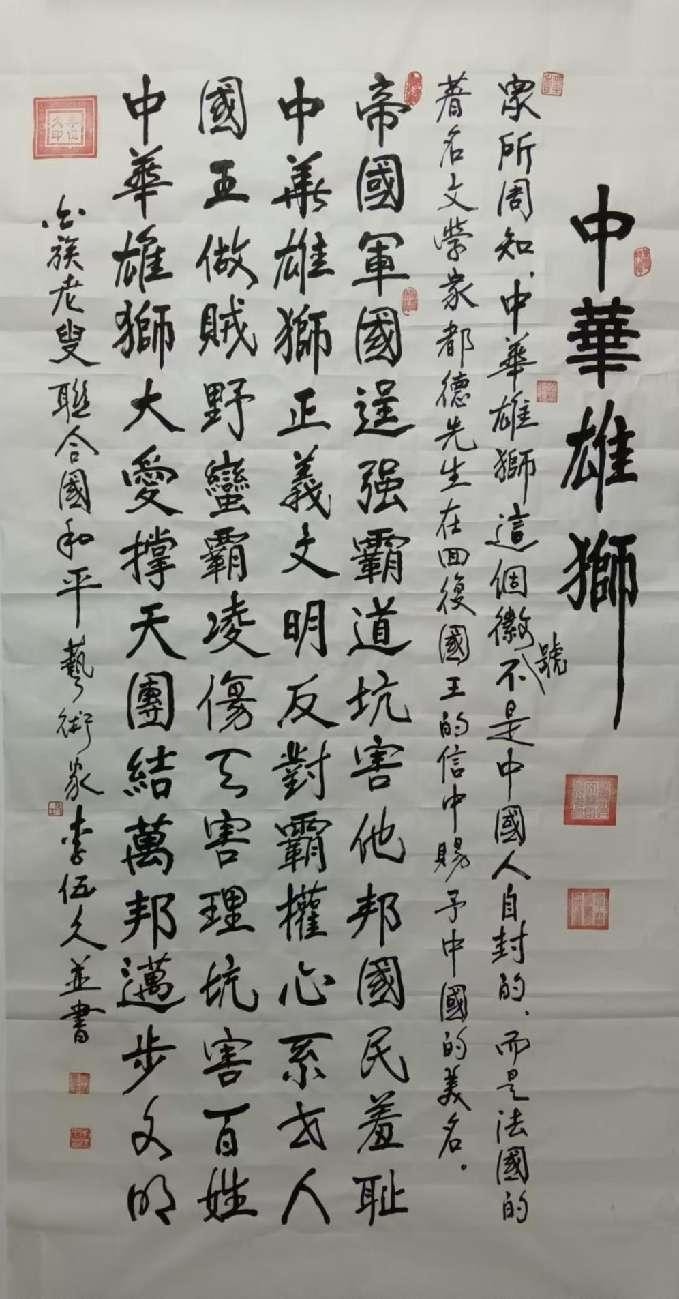 中華雄獅
衆所周知，中華雄獅這個徽號不是中國人自封的，而是法國的
著名文學家都德先生在回復國王的信中賜予中國的美名。
帝國軍國逞强霸道坑害他邦國民羞耻
中華雄獅正義文明反對霸權心系世人
國王做賊野蠻霸凌傷天害理坑害百姓
中華雄獅大愛撑天團結萬邦邁步文明
白族老叟聯合國和平藝術家李伍久並書